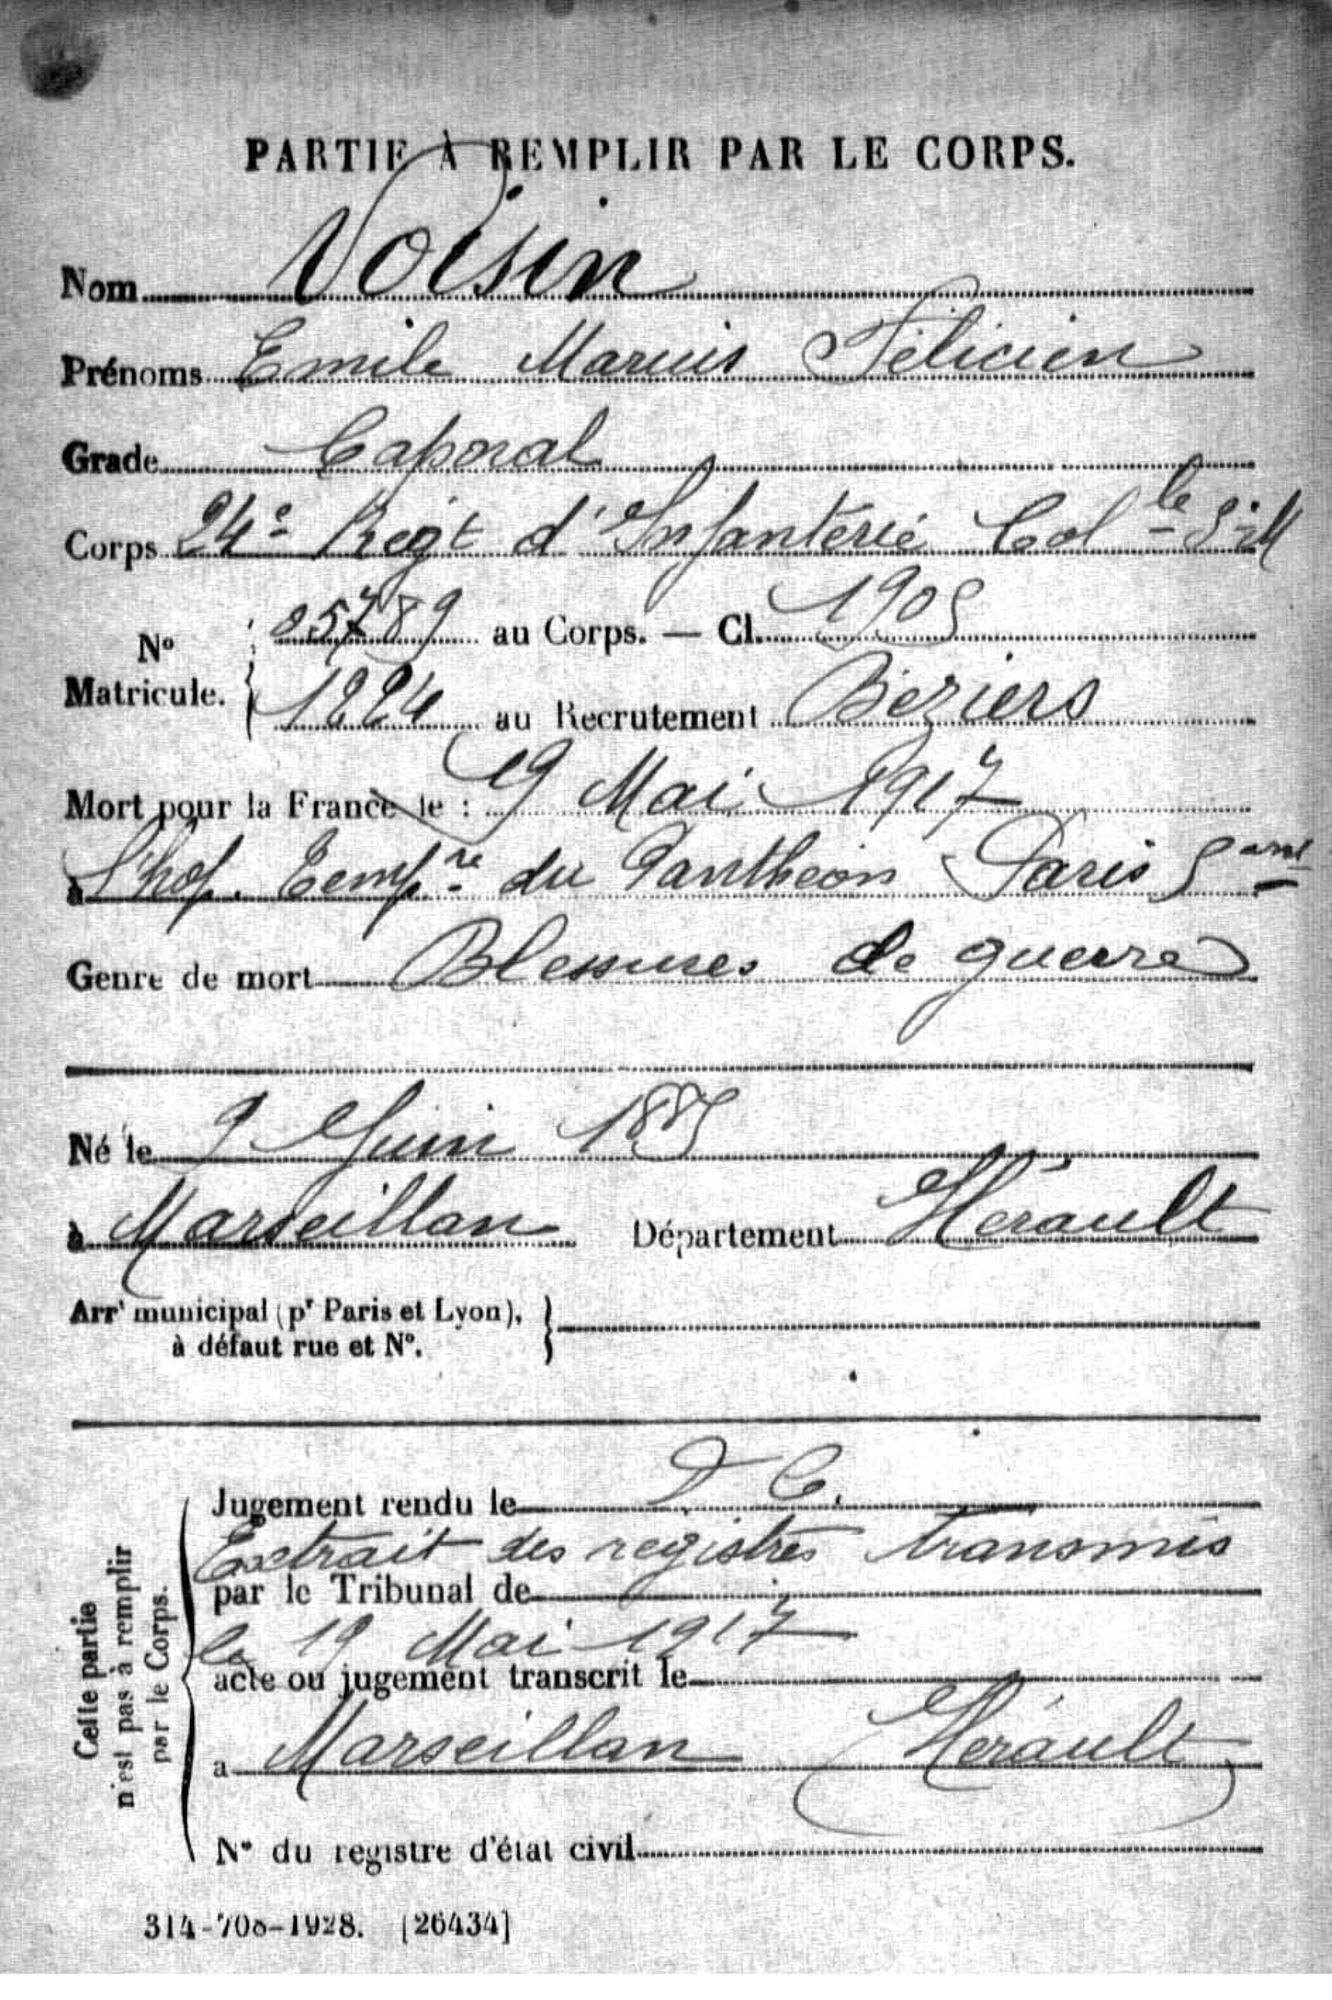 PARTIE À REMPLIR PAR LE CORPS.
Nom Voisin
Prénoms Emile Marius Félicien
Grade Caporal
Corps 24e Regt d'Infanterie Colle
25789 au Corps. — Cl. 1905
No Matricule.
1224 au Recrutement Béziers
Mort pour la France le : 19 Mai 1917
à l'hop. Tempre du Panthéon Paris 5
Genre de mort Blessures de guerre
Né le 9 Juin 1885
à Marseillan Département Hérault
Arrt municipal (pr Paris et Lyon),
à défaut rue et No.
Jugement rendu le D. C.
Extrait des registres transmis
par le Tribunal de
le 19 Mai 1917
acte ou jugement transcrit le
a Marseillan Hérault
No du registre d'état civil
Cette partie
n'est pas à remplir
par le Corps.
314-708-1928. [26434]